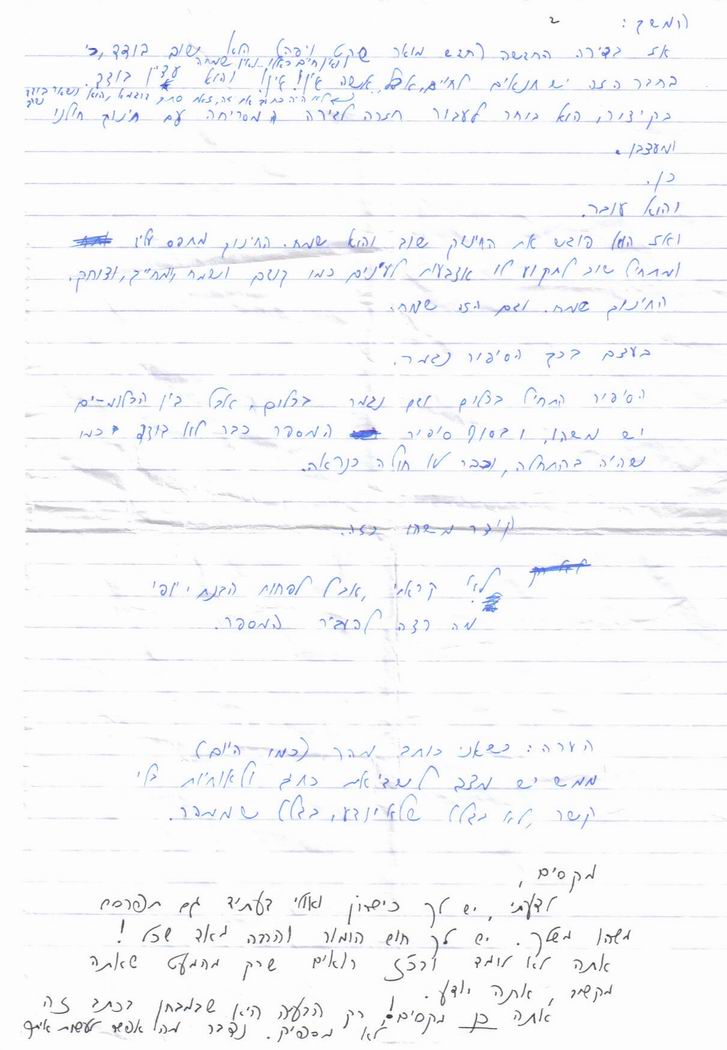 המשך: 2
אז בדירה החדשה (חדש מואר שקט ויפה) הוא שוב בודד, כי
ואין חיים כאלו ואין שמחה
בחבר הזה יש תנאים לחיים, אבל, אנשה אין! אין! והוא עדיין בודד.
בקיצור, הוא בוחר לעבור חזרה לדירה המסריחה עם תינוק חילוני
ומעצבן.
כן.
והוא עובר.
ואז הוא פוגש את התינוק שוב והוא שמח. התינוק מתפס עליו
ומתחיל שוב לתקוע לו אצבעות לעיניים כמו קודם ושמח, ומחייך, וצוחק.
התינוק שמח. וגם הזה שמח.
בעצם בכך הסיפור נגמר.
הסיפור התחיל בצלום ואף נגמר בצלום, אבל בין הצלומ-ים
יש משהו, ובסוף סיפור המספר כבר לא בודד כמו
שהיה בהתחלה, וכבר לא חולה כנראה.
קיצר משהו כזה.
לא קראתי, אבל לפחות הבנתי יופי
מה רצה להעביר המספר.
הערה: כשאני כותב מהר (כמו היום)
ממש יש מצב לשגיאות כתב ולאותיות בלי
קשר, לא בגלל שלא יודע, בגלל שממהר.
מקסים,
לדעתי, יש לך כישרון ואולי בעתיד גם תפרסם
משהו משלך. יש לך חוש הומור והרבה מאד שכל!
אתה לא לומד ורואים שרק מהמעט שאתה
מקשיב, אתה יודע.
אתה כן מקסים! רק הבעיה היא שבמבחן בכתב זה
לא מספיק. נדבר מה אפשר לעשות איתך